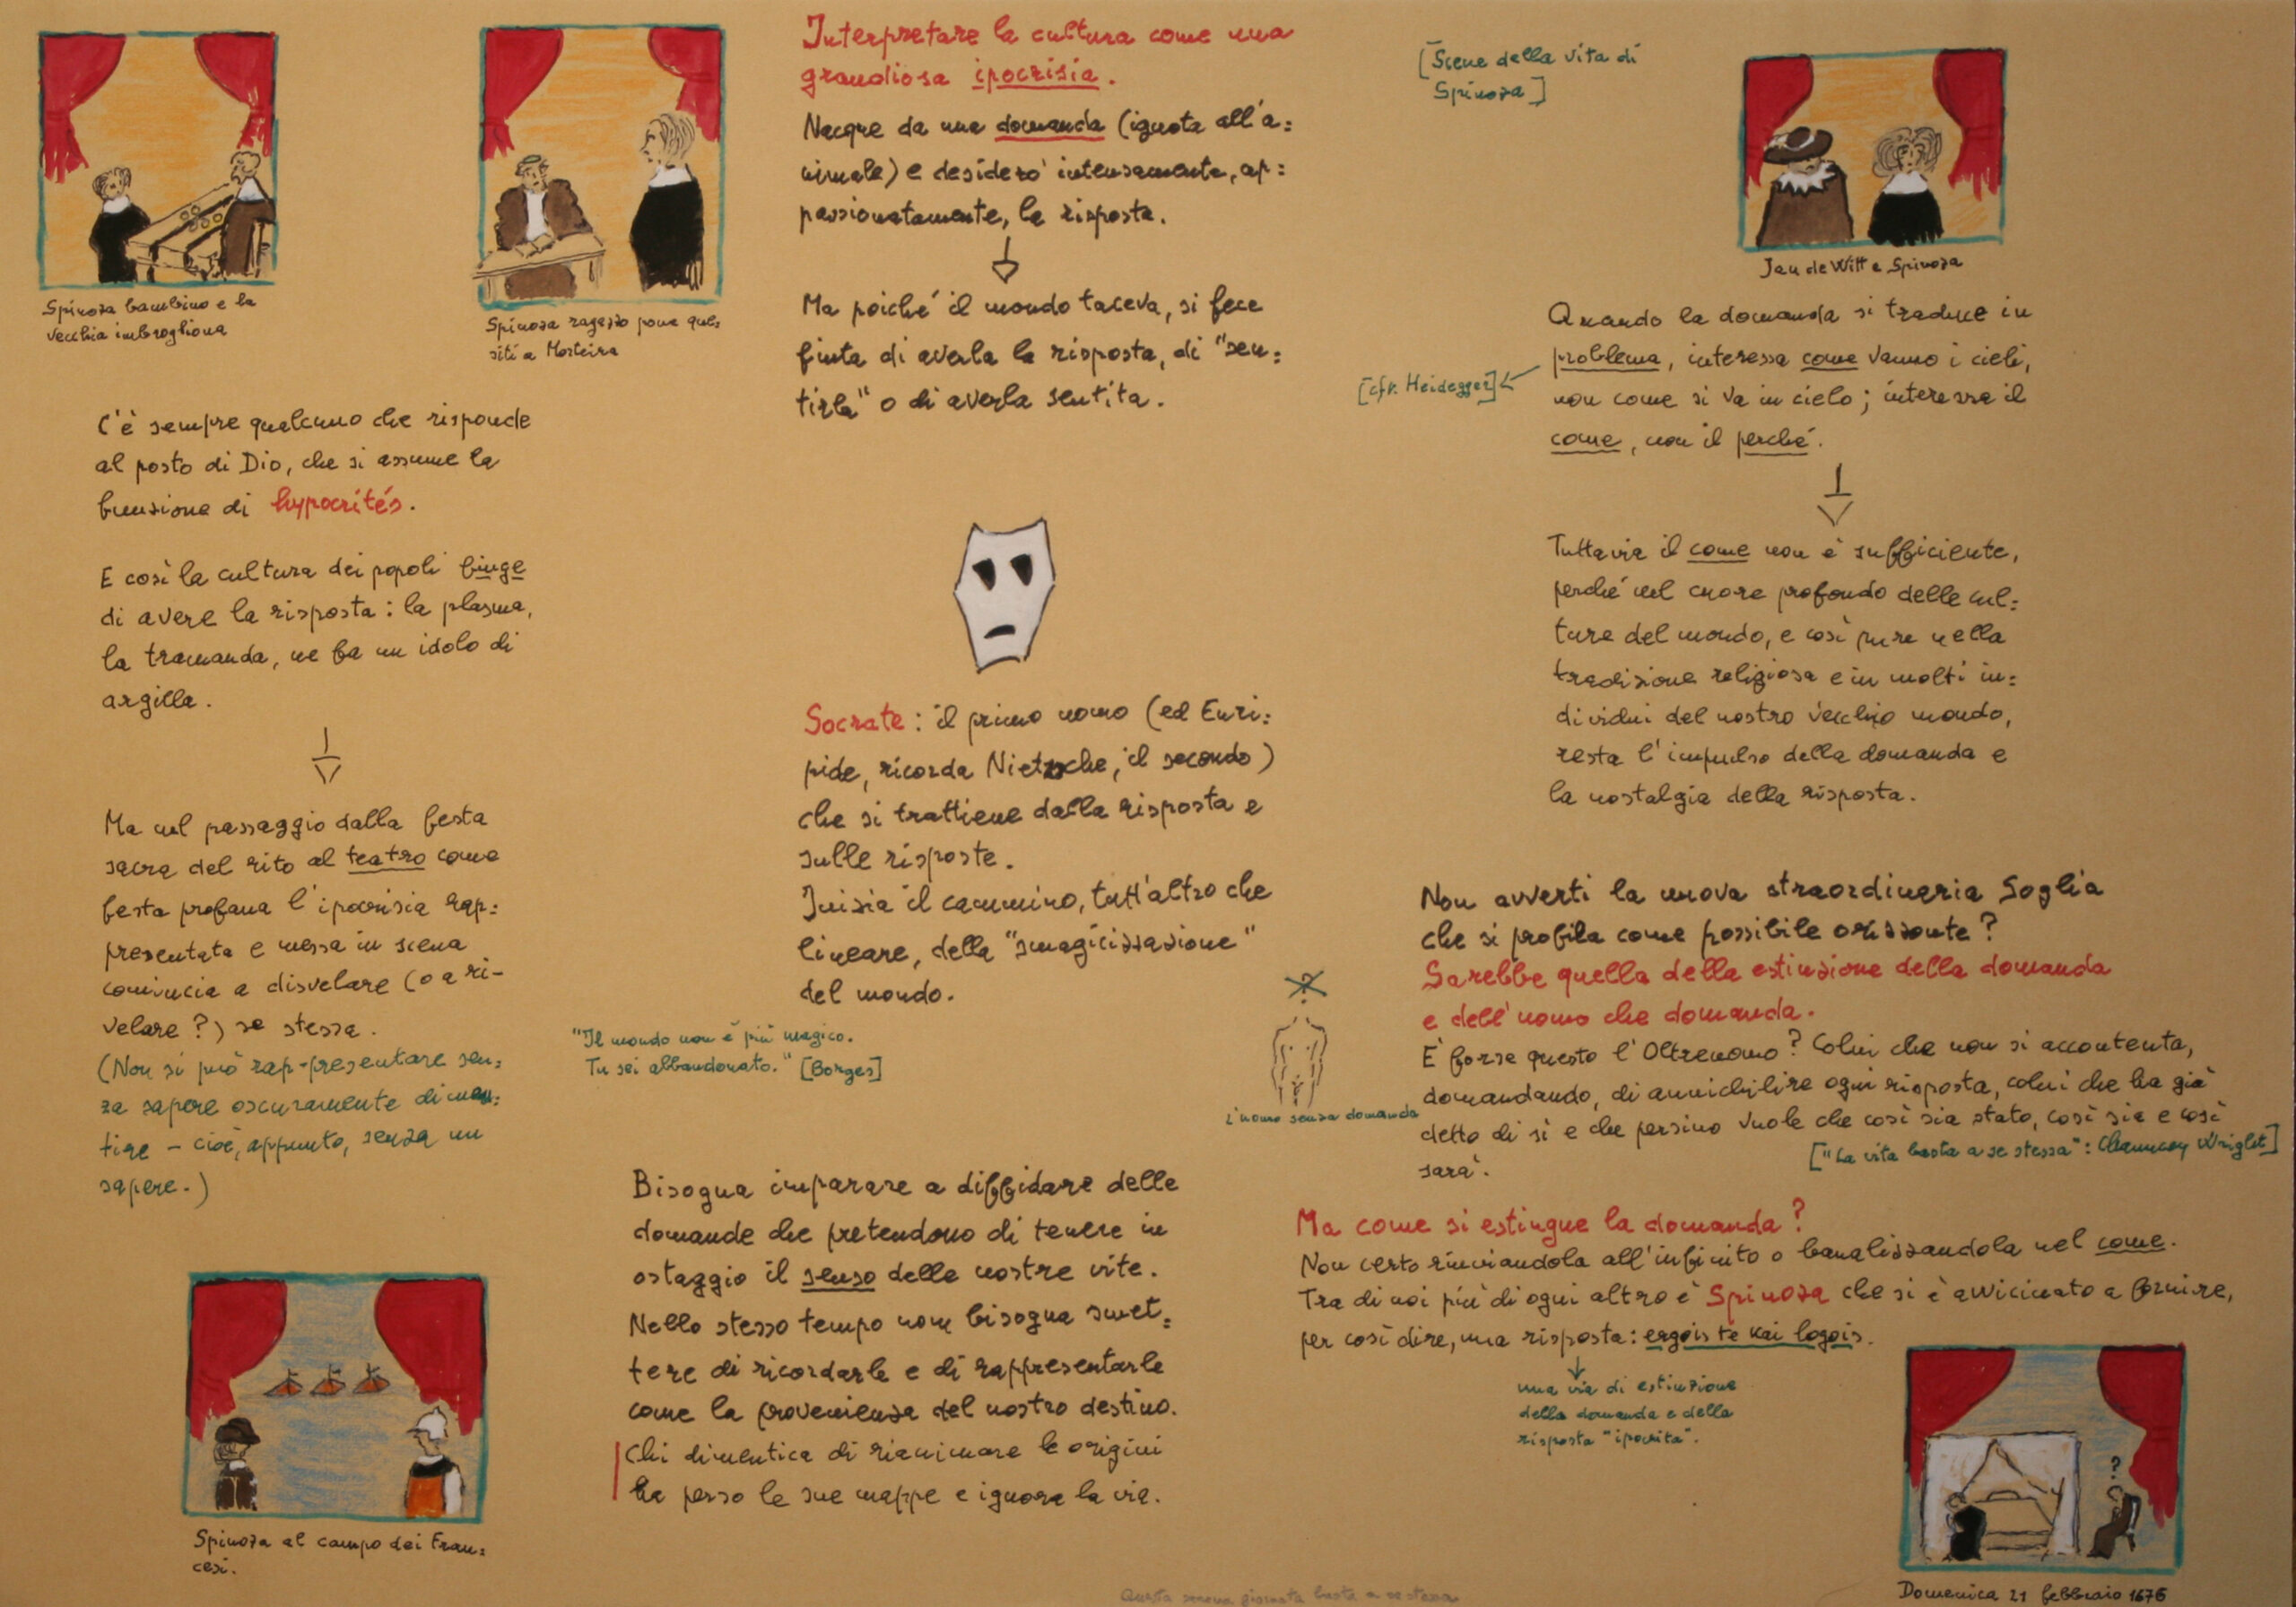 Spinoza bambino e la
vecchia imbrogliona
Spinoza ragazzo pone que=
siti a Morteira
C'è sempre qualcuno che risponde
al posto di Dio, che si assume la
funzione di hypocrités.
E così la cultura dei popoli finge
di avere la risposta: la plasma,
la tramanda, ne fa un idolo di
argilla.
Ma nel passaggio dalla festa
sacra del rito al teatro come
festa profana l'ipocrisia rap=
presentata e messa in scena
comincia a disvelare (o a ri-
velare?) se stessa.
(Non si può rap-presentare sen=
za sapere oscuramente di men=
tire - cioè, appunto, senza un
sapere.)
Spinoza al campo dei Fran=
cesi.
Interpretare la cultura come una
grandiosa ipocrisia.
Nacque da una domanda (ignota all'a=
nimale) e desiderò intensamente, ap=
passionatamente, la risposta.
Ma poiché il mondo taceva, si fece
finta di averla la risposta, di "sen=
tirla" o di averla sentita.
Socrate: il primo uomo (ed Euri=
pide, ricorda Nietzsche, il secondo)
che si trattiene dalla risposta e
sulle risposte.
Inizia il cammino, tutt'altro che
lineare, della "smagicizzazione"
del mondo.
"Il mondo non è più magico.
Tu sei abbandonato." [Borges]
Bisogna imparare a diffidare delle
domande che pretendono di tenere in
ostaggio il senso delle nostre vite.
Nello stesso tempo non bisogna smet=
tere di ricordarle e di rappresentarle
come la provenienza del nostro destino.
Chi dimentica di rianimare le origini
ha perso le sue mappe e ignora la via.
[Scene della vita di
Spinoza]
Jan de Witt e Spinoza
Quando la domanda si traduce in
problema, interessa come vanno i cieli,
[cfr. Heidegger]
non come si va in cielo; interessa il
come, non il perché.
Tuttavia il come non è sufficiente,
perché nel cuore profondo delle cul=
ture del mondo, e così pure nella
tradizione religiosa e in molti in=
dividui del nostro vecchio mondo,
resta l'impulso della domanda e
la nostalgia della risposta.
Non avverti la nuova straordinaria Soglia
che si profila come possibile orizzonte?
Sarebbe quella della estinzione della domanda
e dell'uomo che domanda.
È forse questo l'Oltreuomo? Colui che non si accontenta,
domandando, di annichilire ogni risposta, colui che ha già
detto di sì e che persino vuole che così sia stato, così sia e così
sarà.
["La vita basta a se stessa": Chauncey Wright]
?
L'uomo senza domanda
Ma come si estingue la domanda?
Non certo rinviandola all'infinito o banalizzandola nel come.
Tra di noi più di ogni altro è Spinoza che si è avvicinato a fornire,
per così dire, una risposta: ergois te kai logois.
una via di estinzione
della domanda e della
risposta "ipocrita".
?
Domenica 21 febbraio 1676
Questa serena giornata basta a se stessa